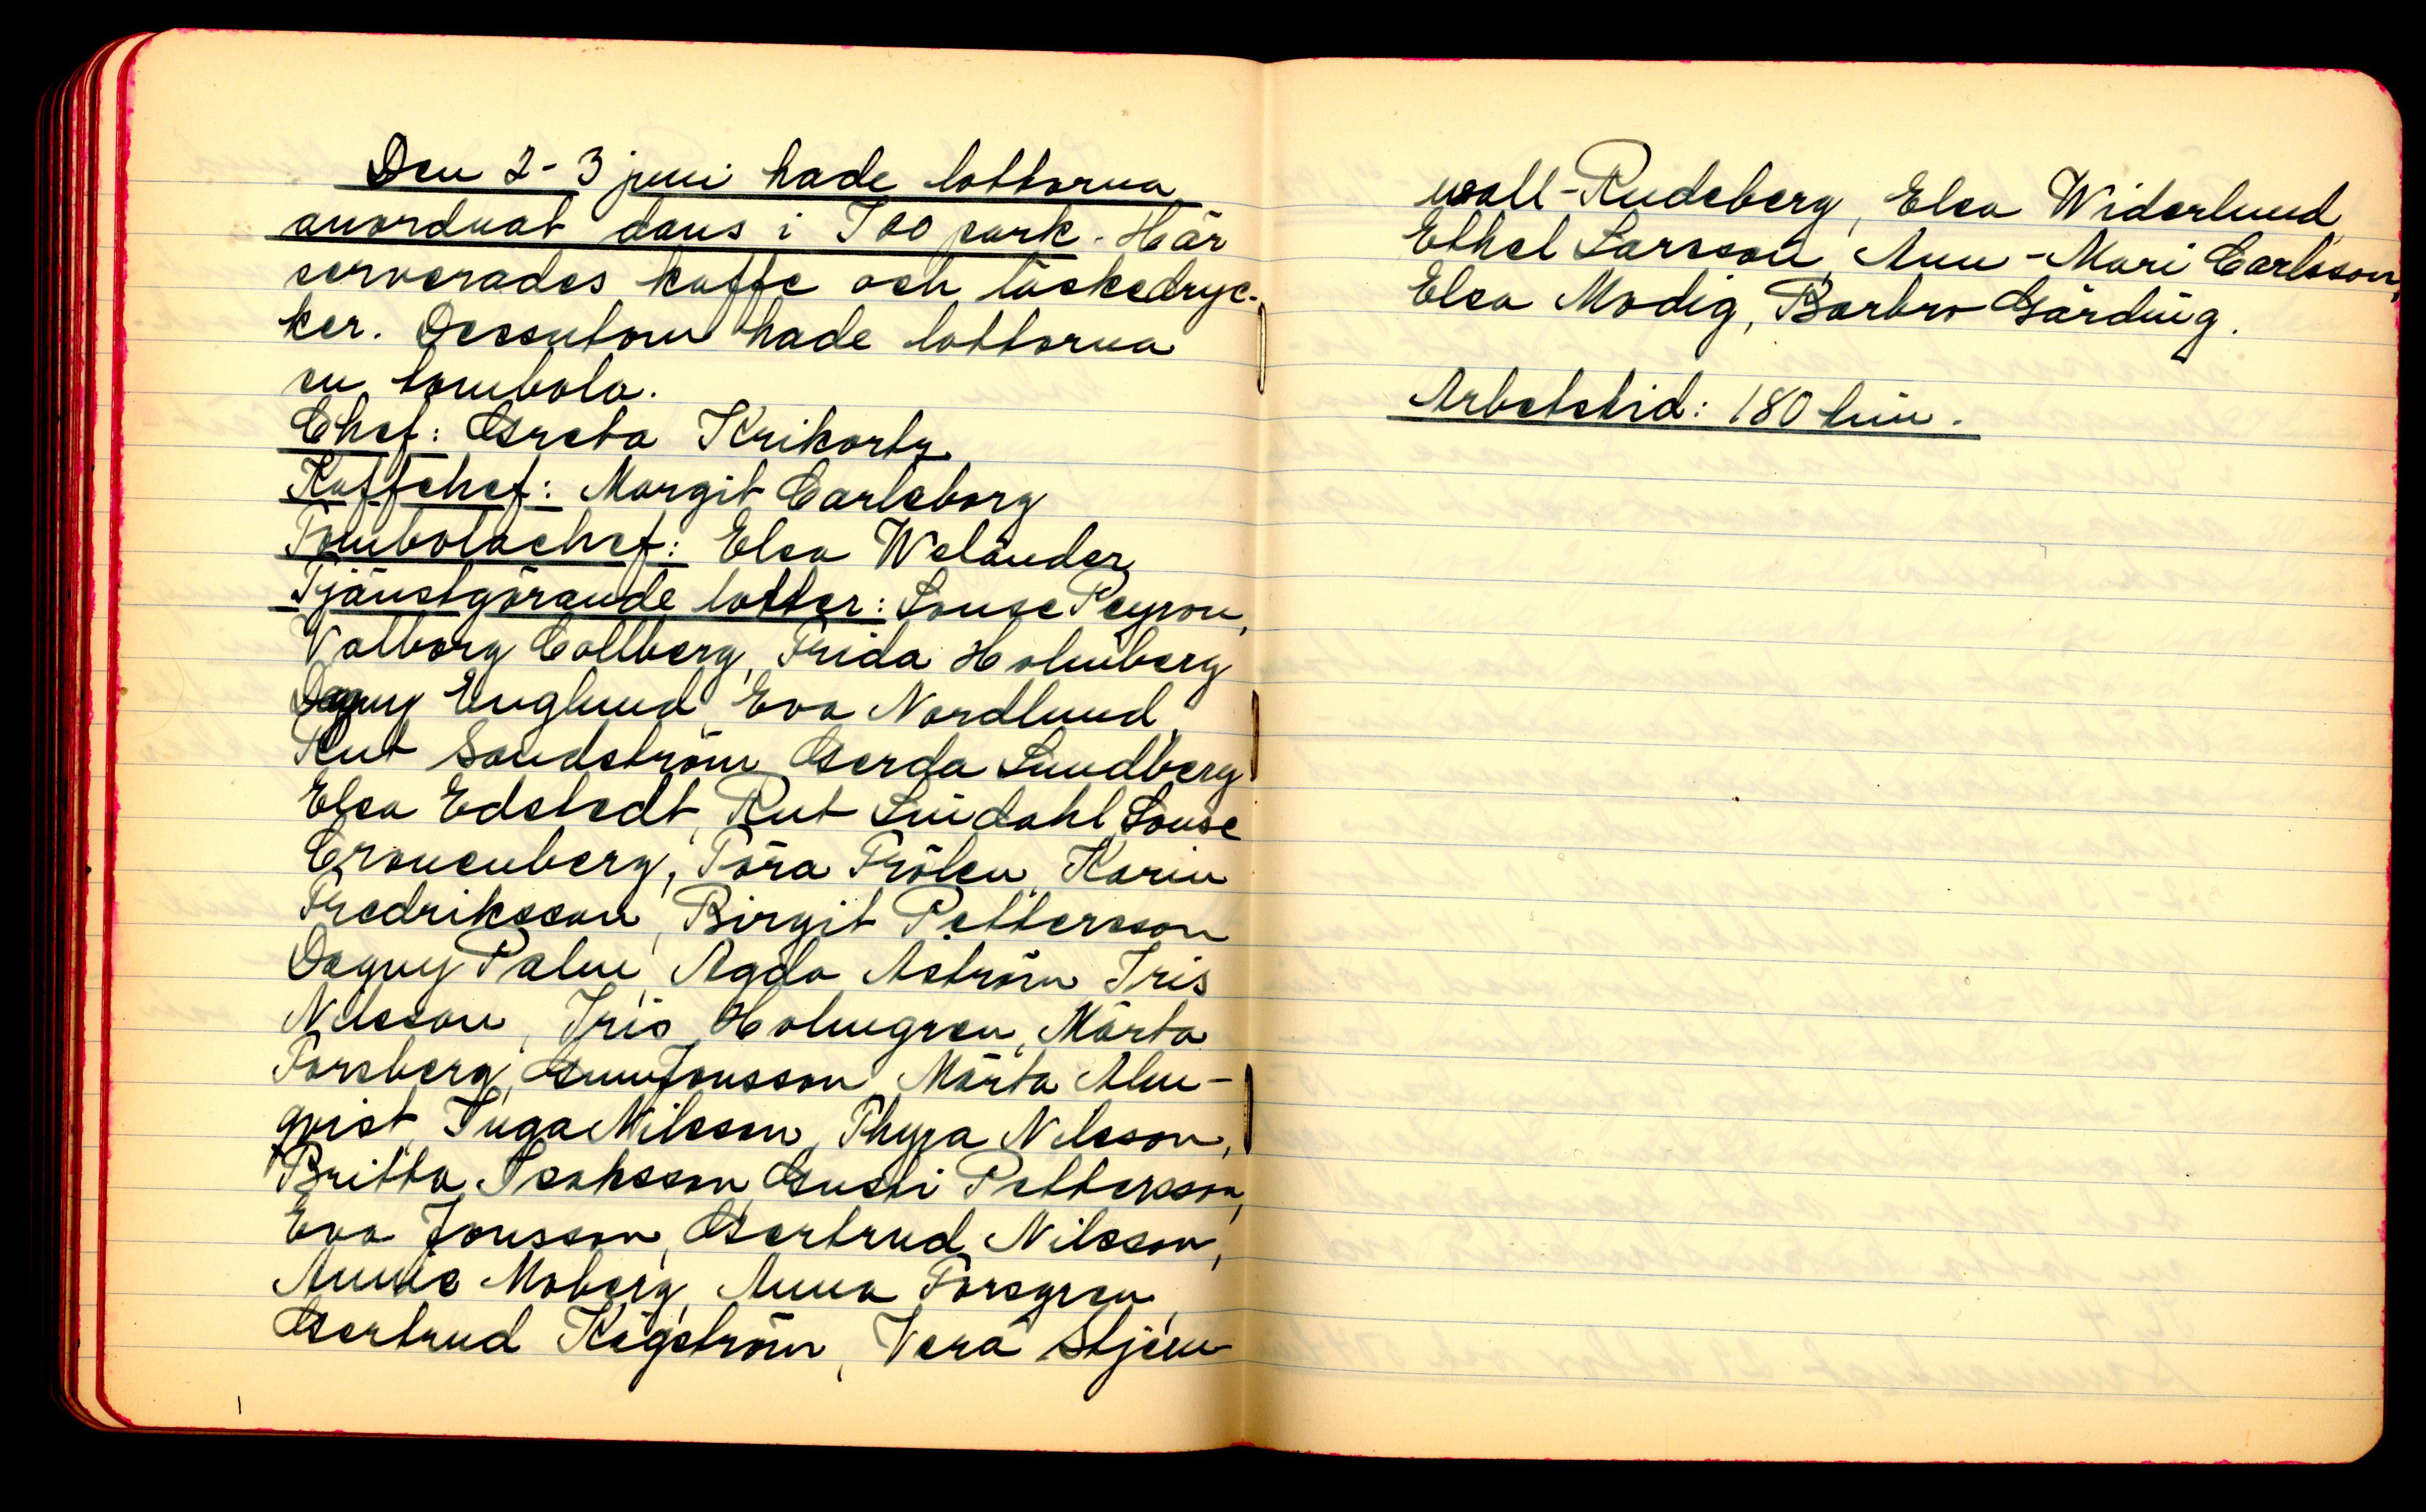 Den 2-3 juni hade lottorna
anordnat dans i I 20 park. Här
serverades kaffe och läskedryc-
ker. Dessutom hade lottorna
en tombola.
Chef: Greta Krikortz
Kaffchef: Margit Carlsborg
Tombolachef: Elsa Welander
Tjänstgörande lottor: Louise Peyron,
Valborg Collberg, Frida Holmberg
Dagny Englund, Eva Nordlund,
Rut Sandström, Gerda Lundberg
Elsa Edstedt, Rut Lindahl, Louise
Cronenberg, Tora Frölen, Karin
Fredriksson, Birgit Pettersson
Dagny Palm, Agda Åström, Iris
Nilsson, Iris Holmgren, Märta
Forsberg, Gun Jonsson, Märta Alm-
qvist, Inga Nilsson, Thyra Nilsson,
Britta Isaksson, Gusti Pettersson,
Eva Jonsson, Gertrud Nilsson,
Annie Moberg, Anna Forsgren,
Gertrud Kågström, Vera Stjern-
wall-Rudeberg, Elsa Widerlund,
Ethel Larsson, Ann-Mari Carlsson,
Elsa Modig, Barbro Gärding.
Arbetstid: 180 tim.